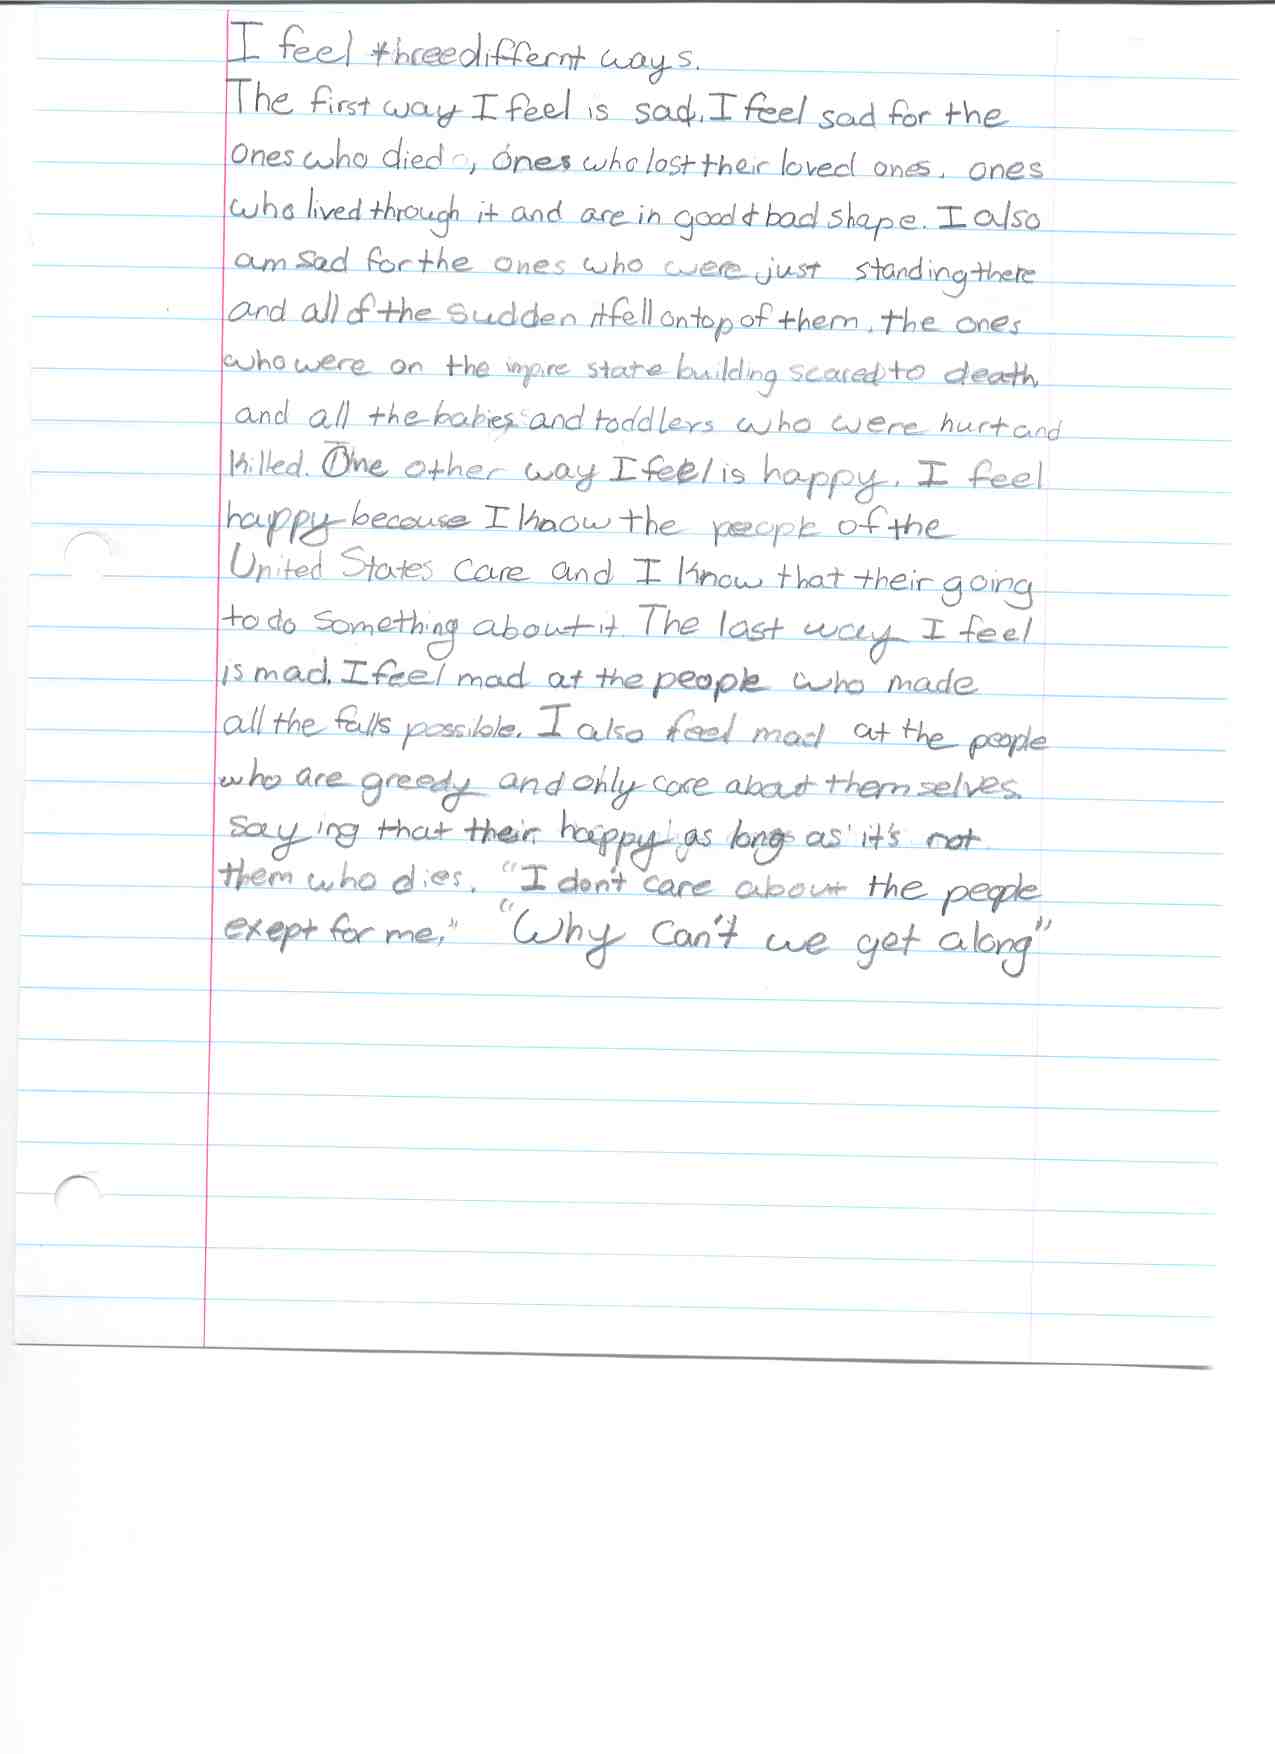 I feel three differnt ways.
The first way I feel is sad. I feel sad for the
ones who died, ones who lost their loved ones, ones
who lived through it and are in good & bad shape. I also
am sad for the ones who were just standing there
and all of the sudden it fell on top of them, the ones
who were on the impire state building scared to death,
and all the babies and toddlers who were hurt and
killed. One other way I feel is happy. I feel
happy because I know the people of the
United States care and I know that their going
to do something about it. The last way I feel
is mad. I feel mad at the people who made
all the falls possible. I also feel mad at the people
who are greedy and only care about themselves
saying that their happy as long as it's not
them who dies. "I don't care about the people
exept for me." "Why can't we get along"